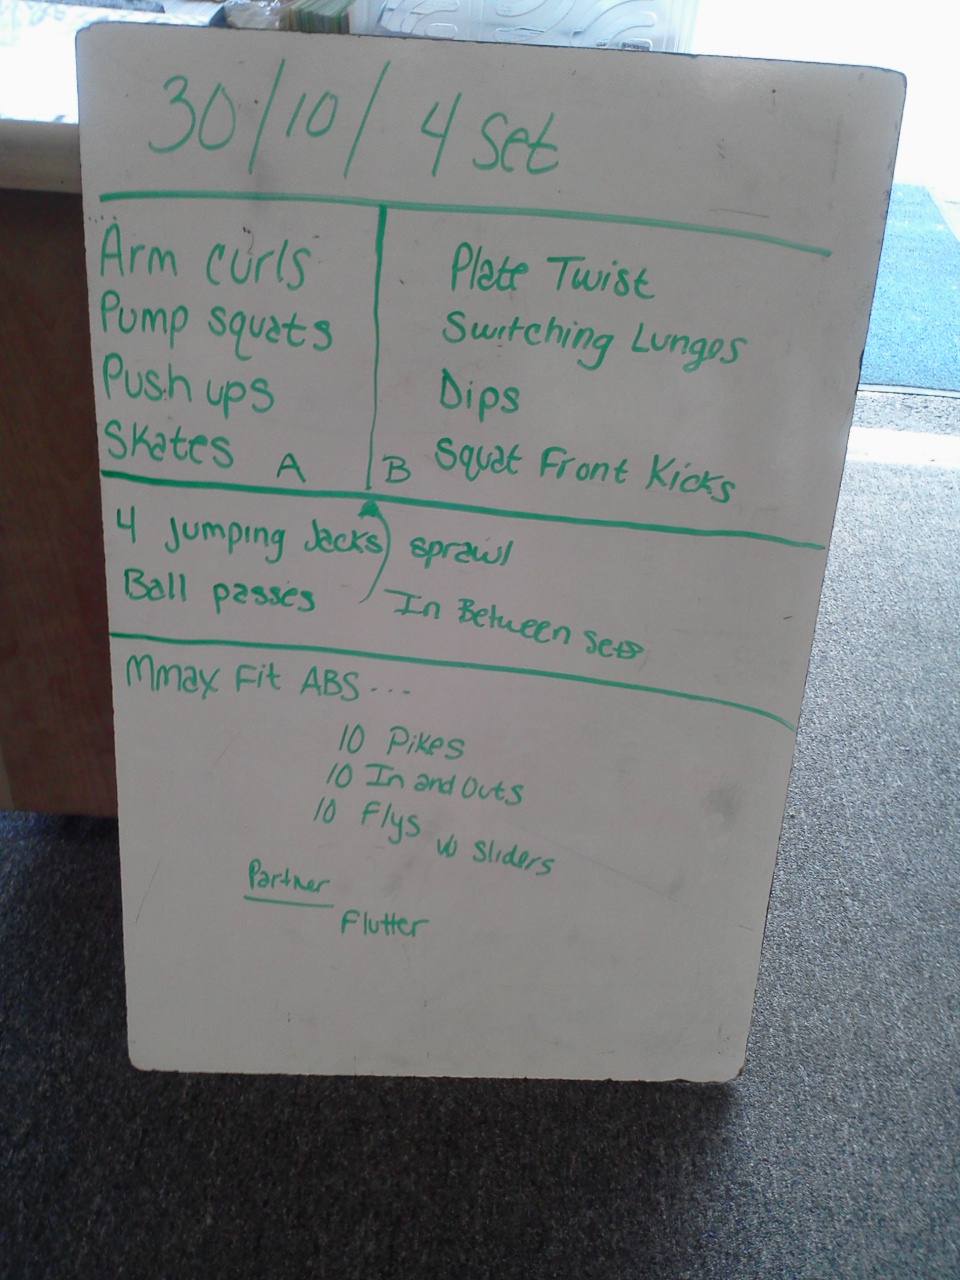 30/10/ 4 Set
Arm curls
Pump squats
Push ups
Skates A
Plate Twist
Switching Lunges
Dips
B Squat Front Kicks
4 Jumping Jacks) sprawl
Ball passes
In Between Sets
Mmax Fit ABS...
10 Pikes
10 In and Outs
10 Flys w Sliders
Partner
Flutter